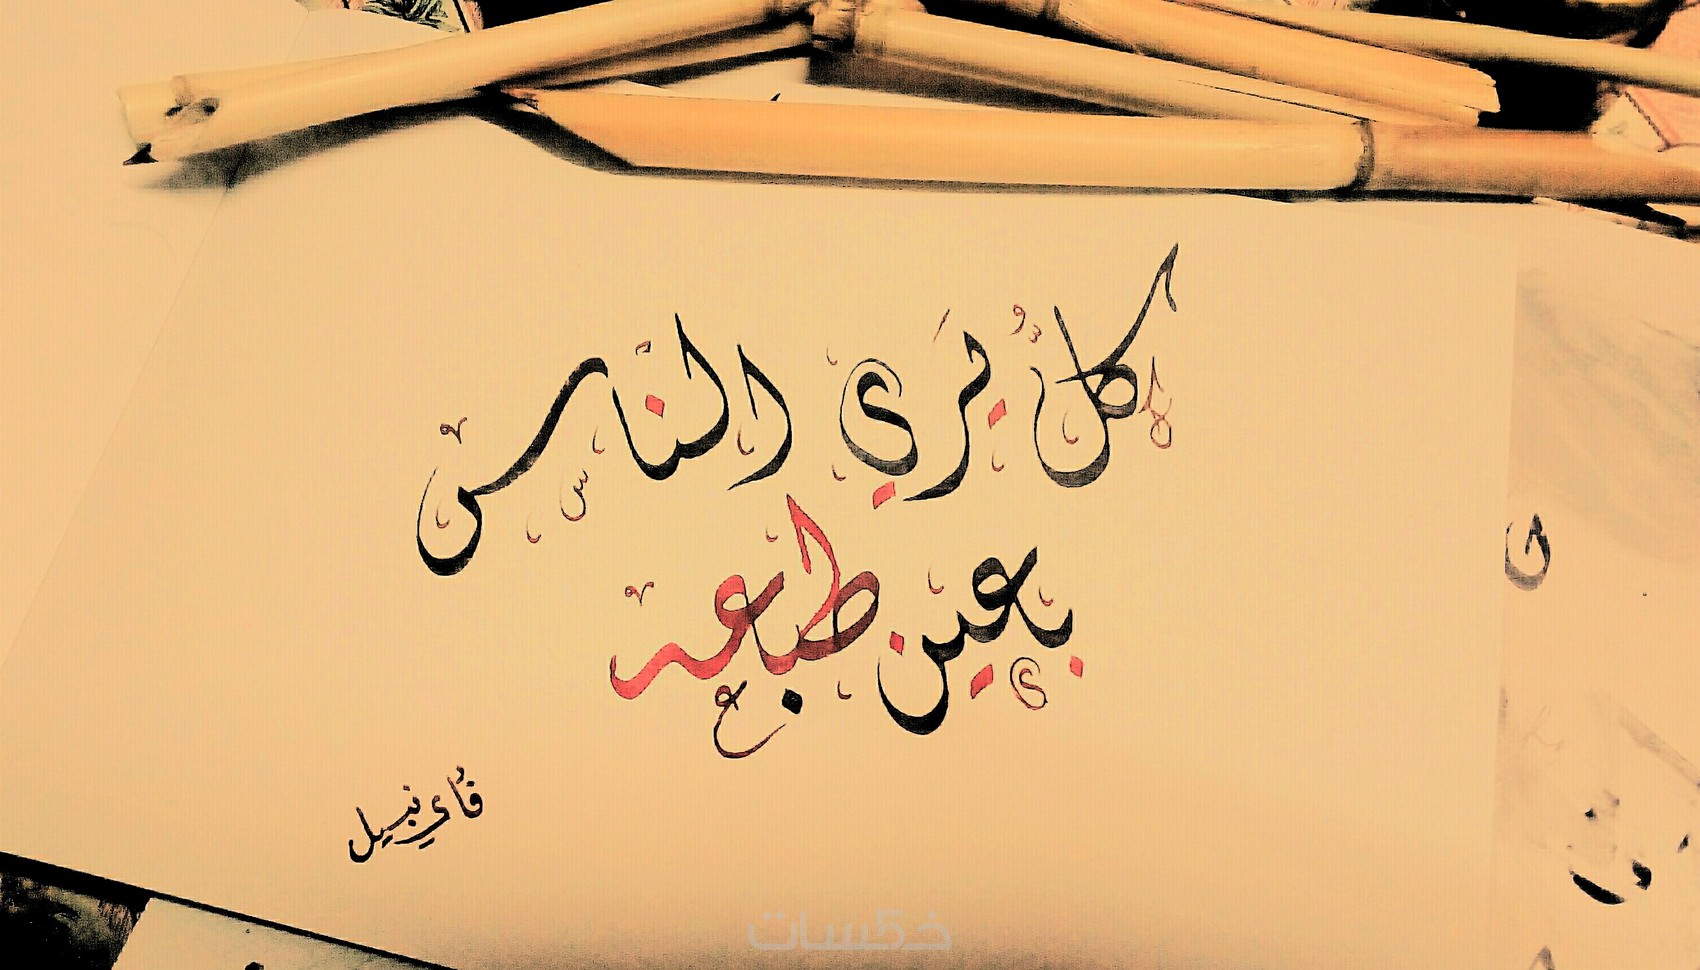 كلٌّ يَرى الناس
بعين طباعه
نبيل
خمسات